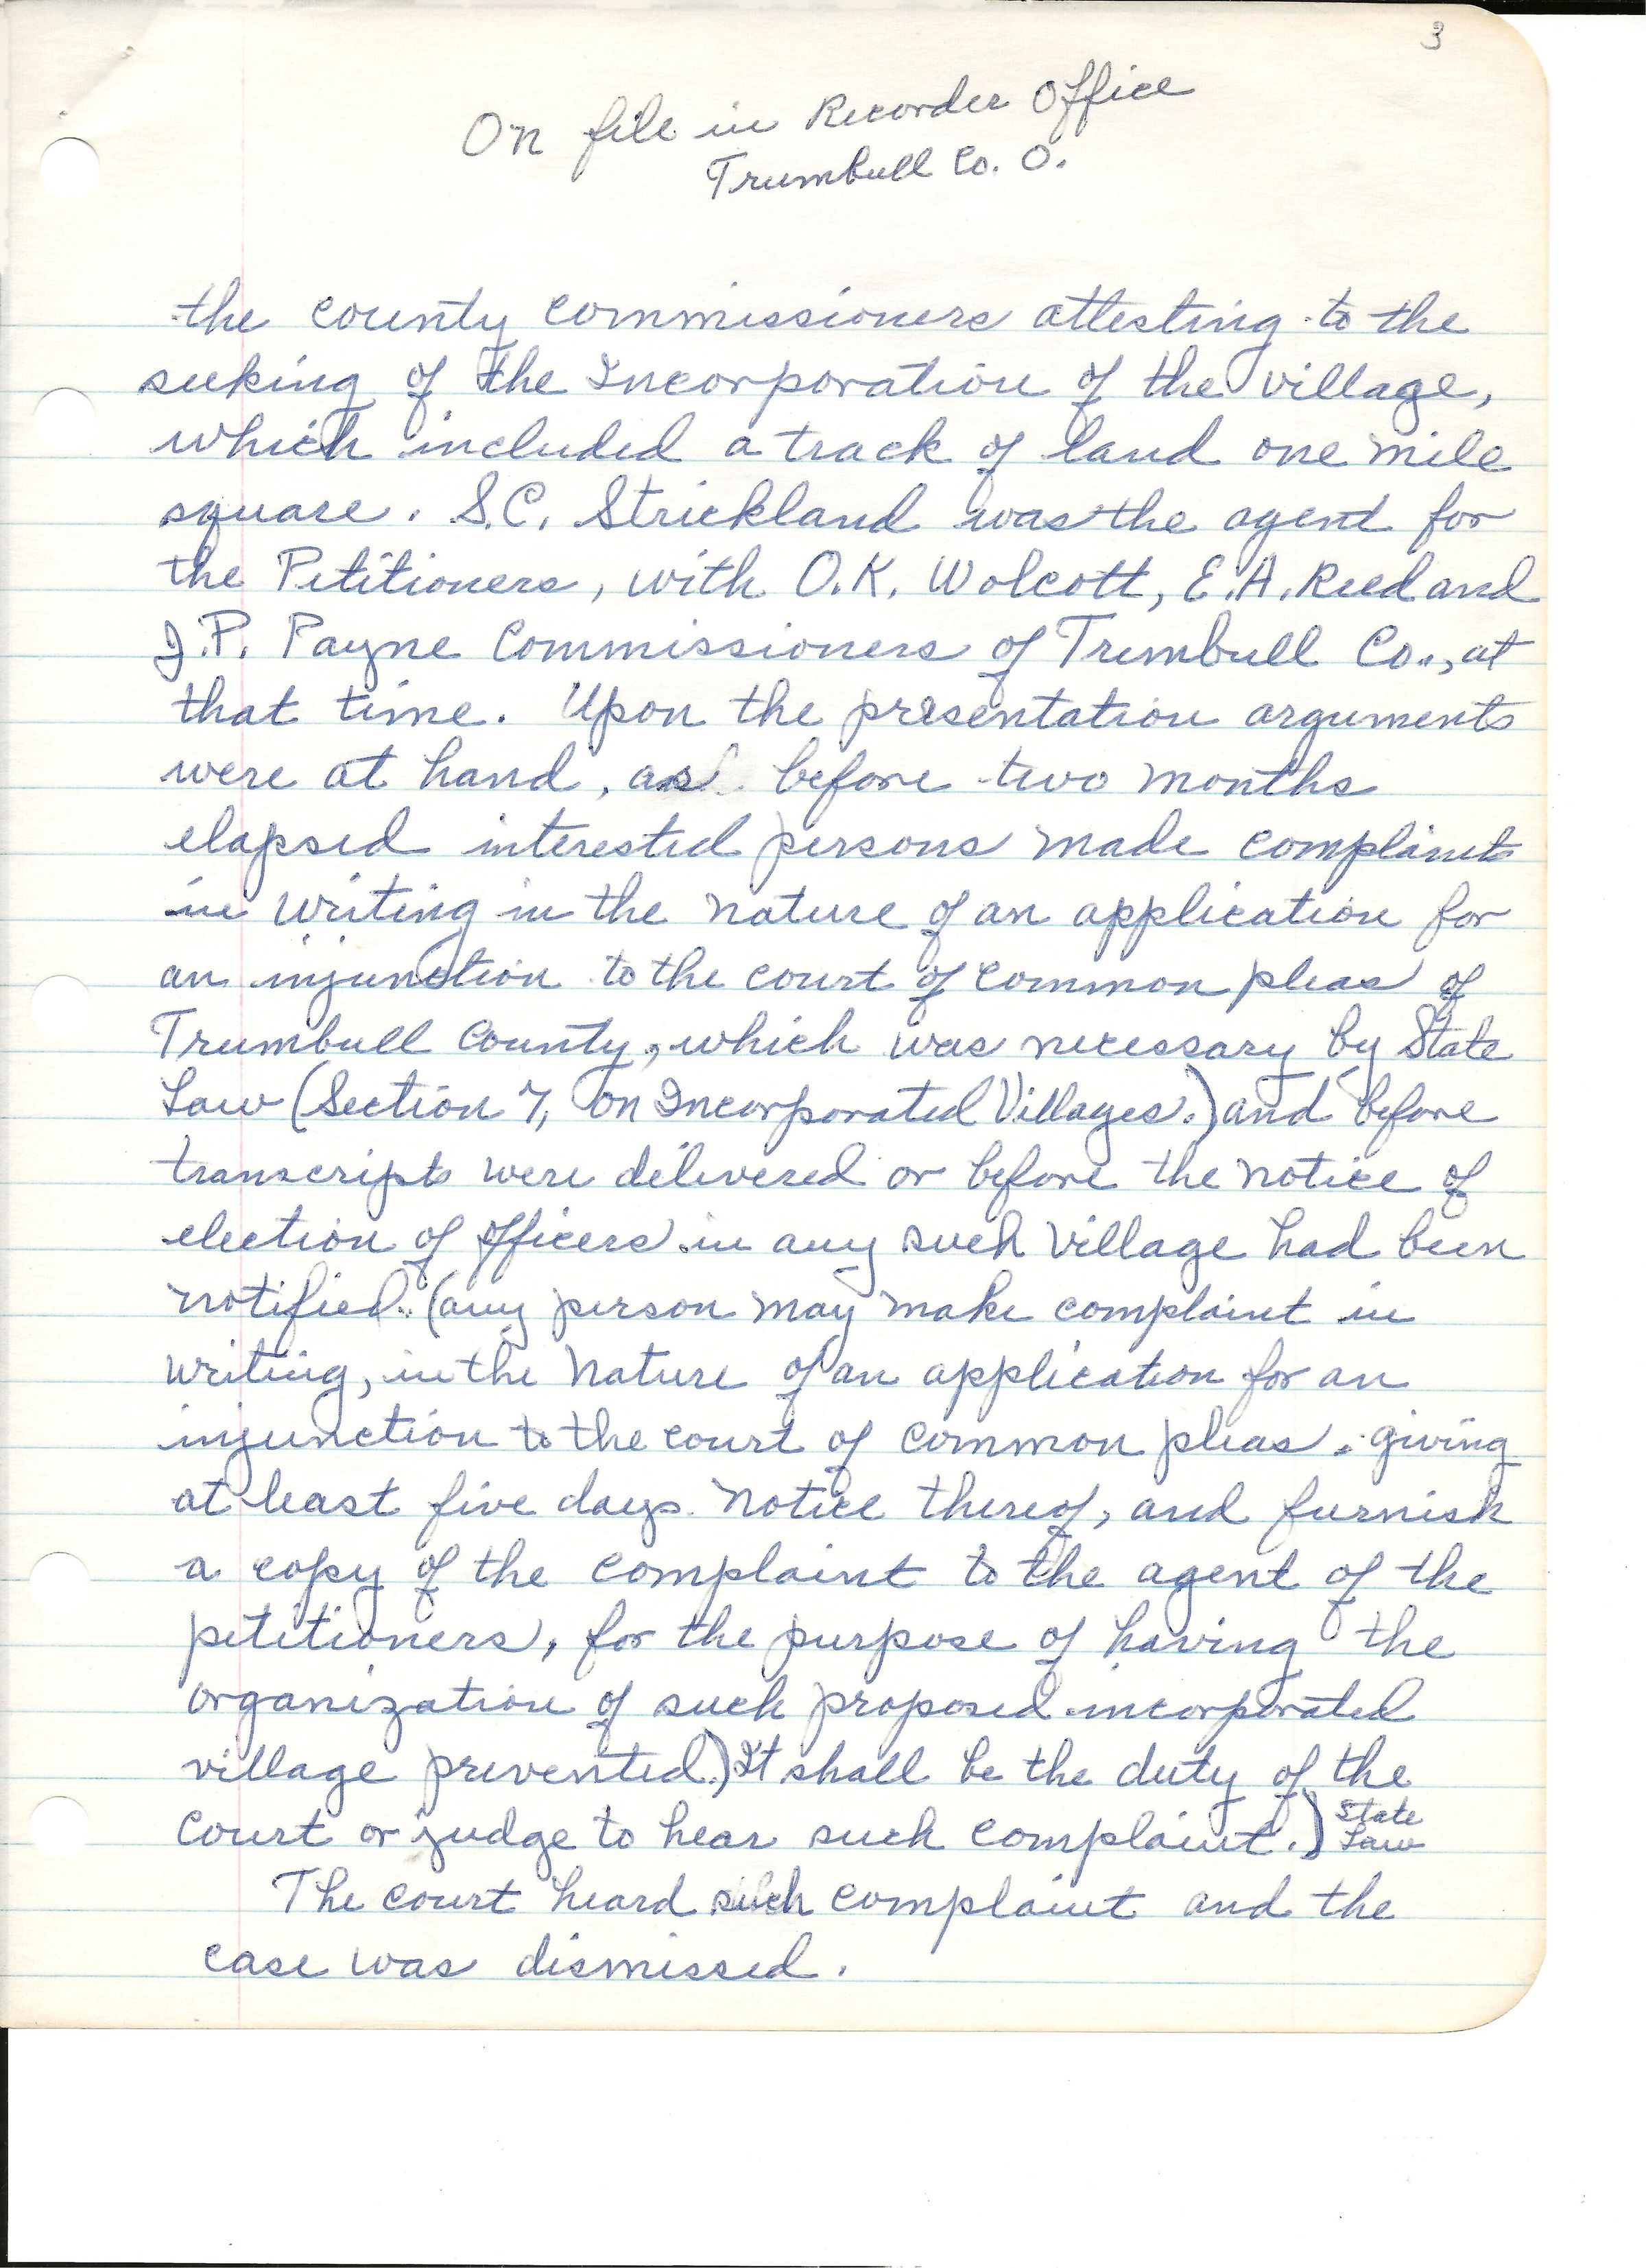 3
On file in Recorder Office
Trumbull Co. O.
the county commissioners attesting to the
seeking of the Incorporation of the village,
which included a track of land one mile
square. S.C. Strickland was the agent for
the Petitioners, with O.K. Wolcott, E.A. Reed and
J.P. Payne Commissioners of Trumbull Co., at
that time. Upon the presentation arguments
were at hand, as before two months
elapsed interested persons made complaints
in writing in the nature of an application for
an injunction to the court of common pleas of
Trumbull County, which was necessary by State
Law (Section 7, on Incorporated Villages.) and before
transcripts were delivered or before the notice of
election of officers in any such village had been
notified. (any person may make complaint in
writing, in the nature of an application for an
injunction to the court of common pleas. giving
at least five days notice thereof, and furnish
a copy of the complaint to the agent of the
petitioners, for the purpose of having the
organization of such proposed incorporated
village prevented.) It shall be the duty of the
court or judge to hear such complaint.) State Law
The court heard such complaint and the
case was dismissed.